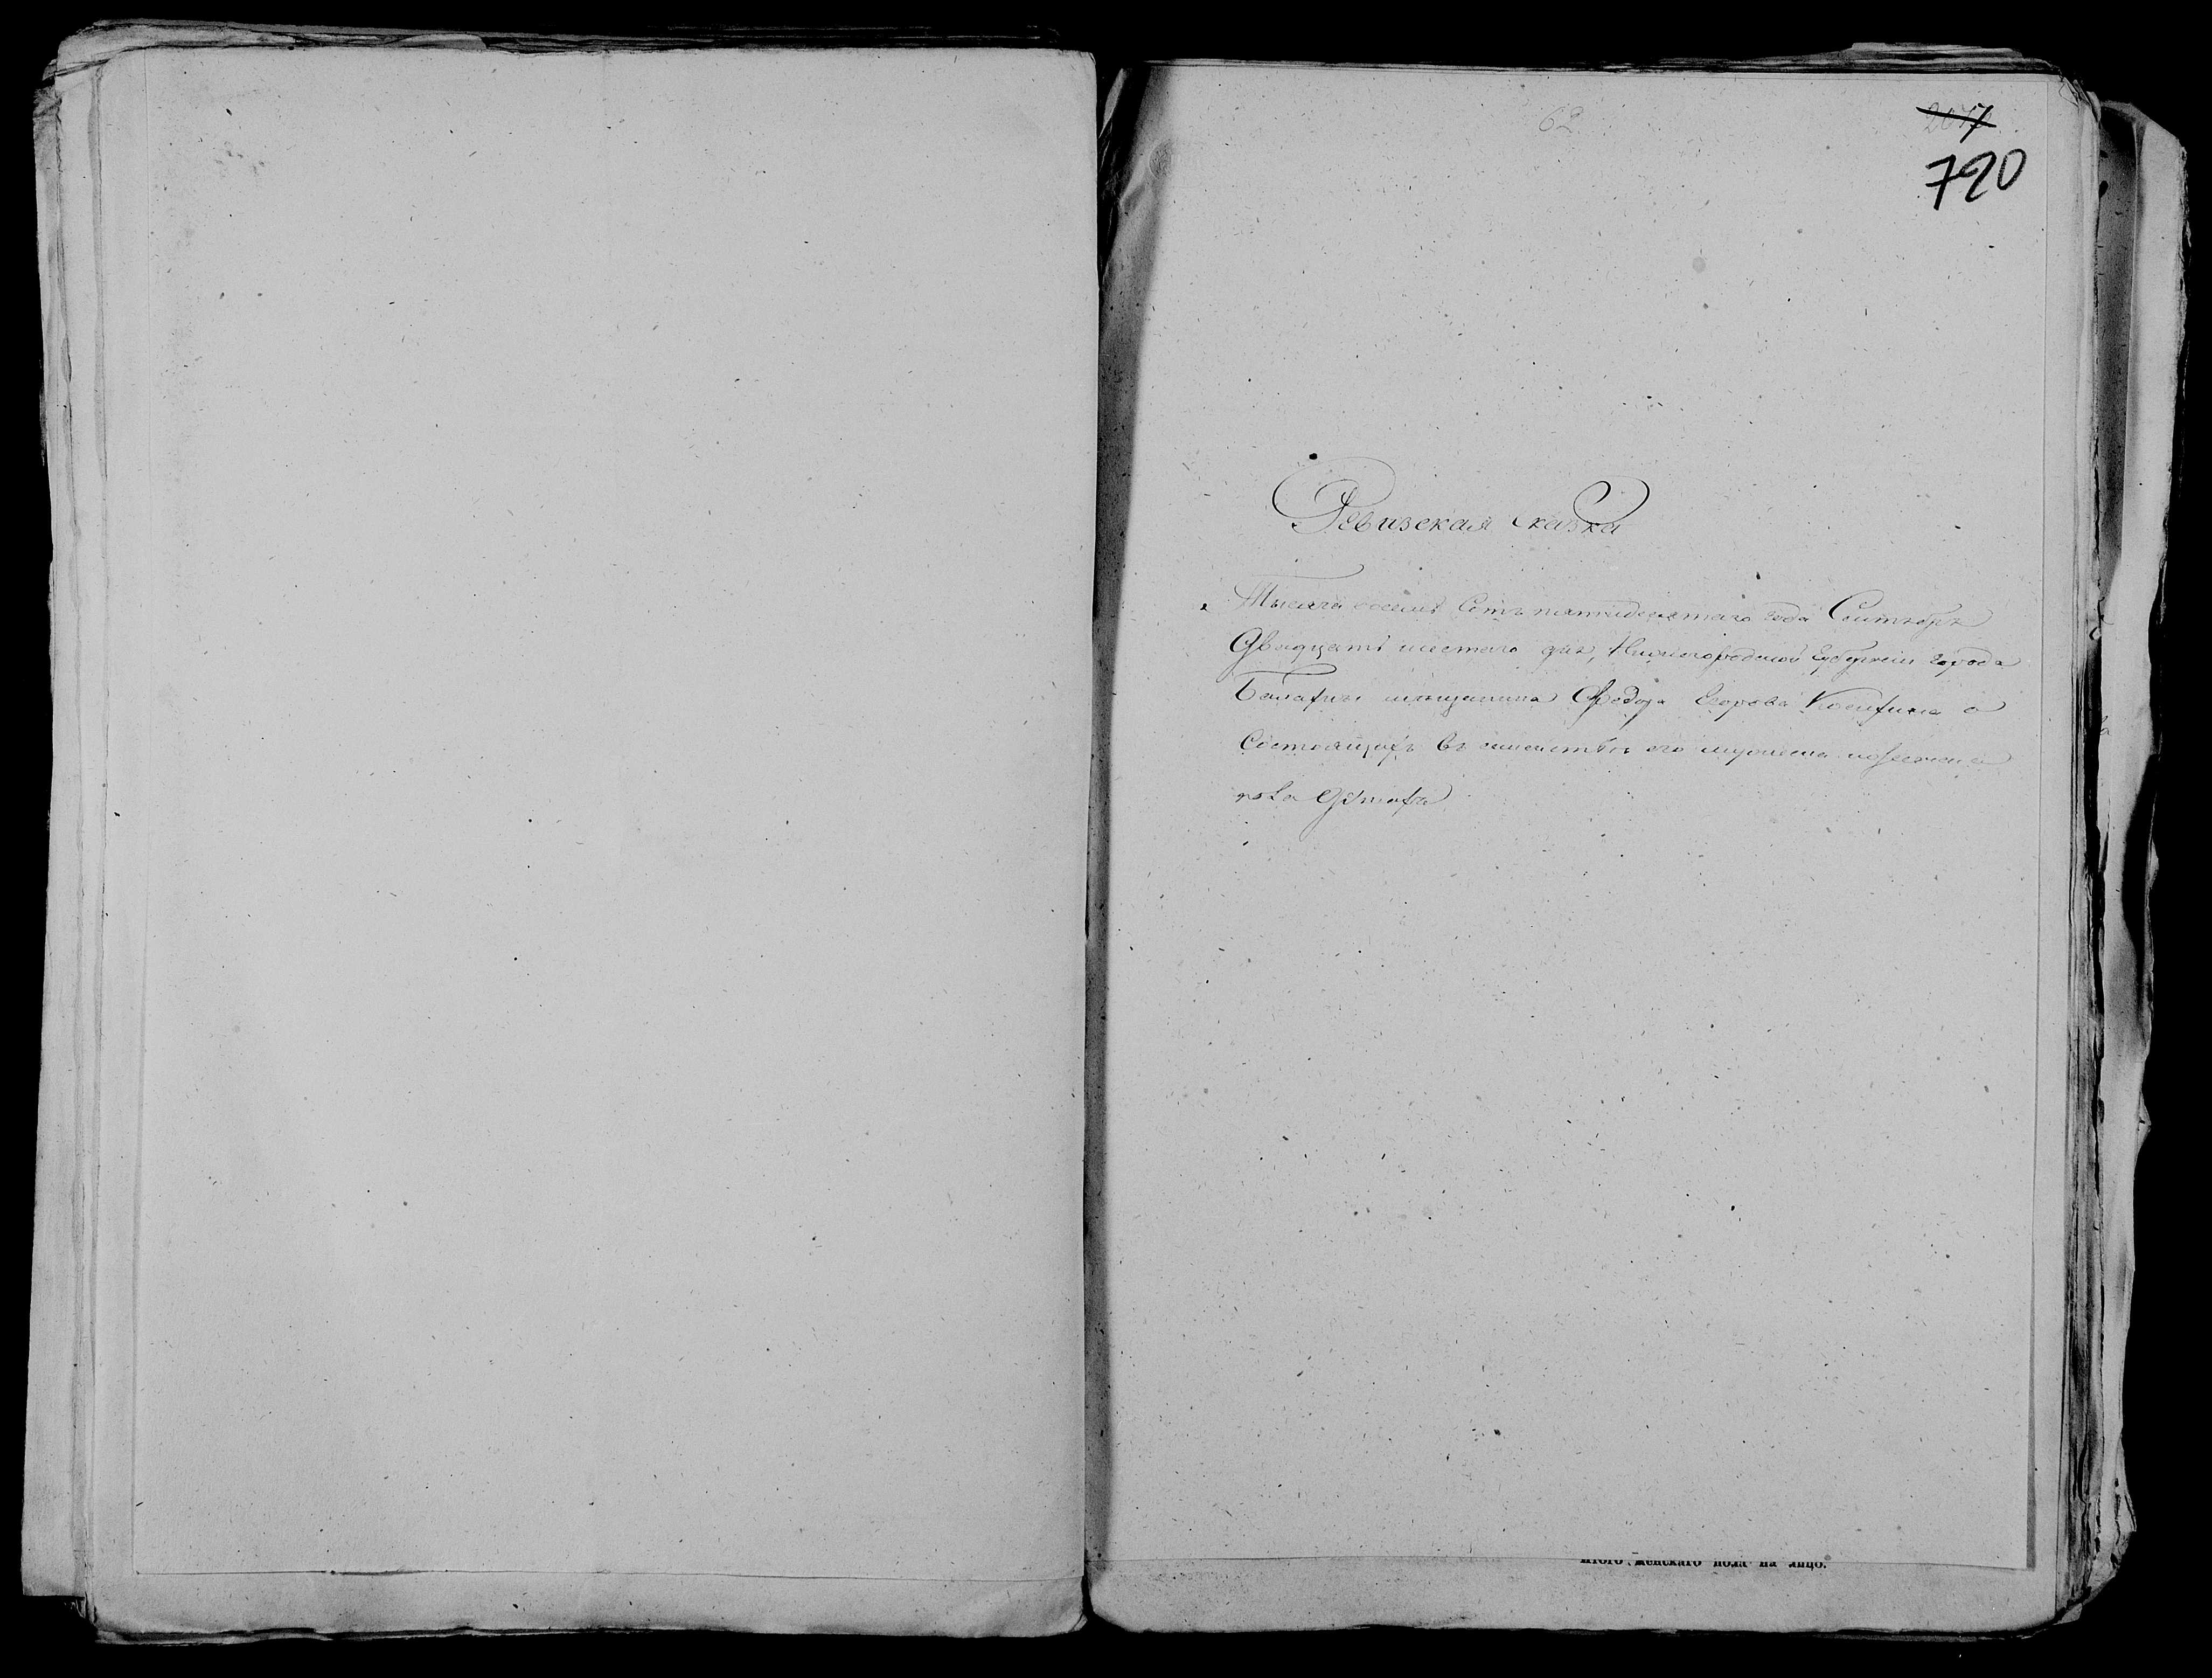 62
2077
720
Ревизская Сказка
Тысяча восемь Сотъ пятидесятаго года Сентября
Двадцать шестаго дня, Нижегородской Губернии города
Балахны мещанина Федора Егорова о
Состоящихъ въ семействе его мужеска и женска
пола душахъ
Итого женскаго пола на лицо.